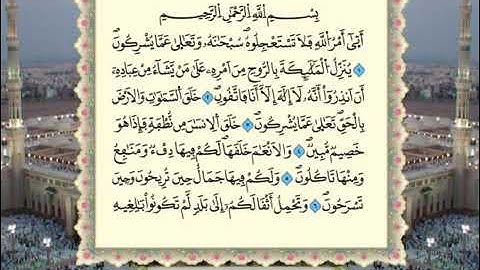 بِسْمِ اللَّهِ الرَّحْمَٰنِ الرَّحِيمِ
أَتَىٰ أَمْرُ اللَّهِ فَلَا تَسْتَعْجِلُوهُ ۚ سُبْحَانَهُ وَتَعَالَىٰ عَمَّا يُشْرِكُونَ
١ يُنَزِّلُ الْمَلَائِكَةَ بِالرُّوحِ مِنْ أَمْرِهِ عَلَىٰ مَن يَشَاءُ مِنْ عِبَادِهِ
أَنْ أَنذِرُوا أَنَّهُ لَا إِلَٰهَ إِلَّا أَنَا فَاتَّقُونِ ٢ خَلَقَ السَّمَاوَاتِ وَالْأَرْضَ
بِالْحَقِّ ۚ تَعَالَىٰ عَمَّا يُشْرِكُونَ ٣ خَلَقَ الْإِنسَانَ مِن نُّطْفَةٍ فَإِذَا هُوَ
خَصِيمٌ مُّبِينٌ ٤ وَالْأَنْعَامَ خَلَقَهَا ۗ لَكُمْ فِيهَا دِفْءٌ وَمَنَافِعُ
وَمِنْهَا تَأْكُلُونَ ٥ وَلَكُمْ فِيهَا جَمَالٌ حِينَ تُرِيحُونَ وَحِينَ
تَسْرَحُونَ ٦ وَتَحْمِلُ أَثْقَالَكُمْ إِلَىٰ بَلَدٍ لَّمْ تَكُونُوا بَالِغِيهِ